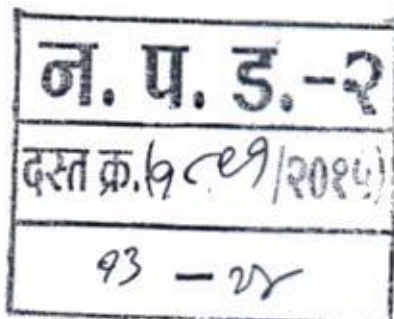 न. प. ड.-२
दस्त क्र.(१८९१/२०१५)
१३ - २४